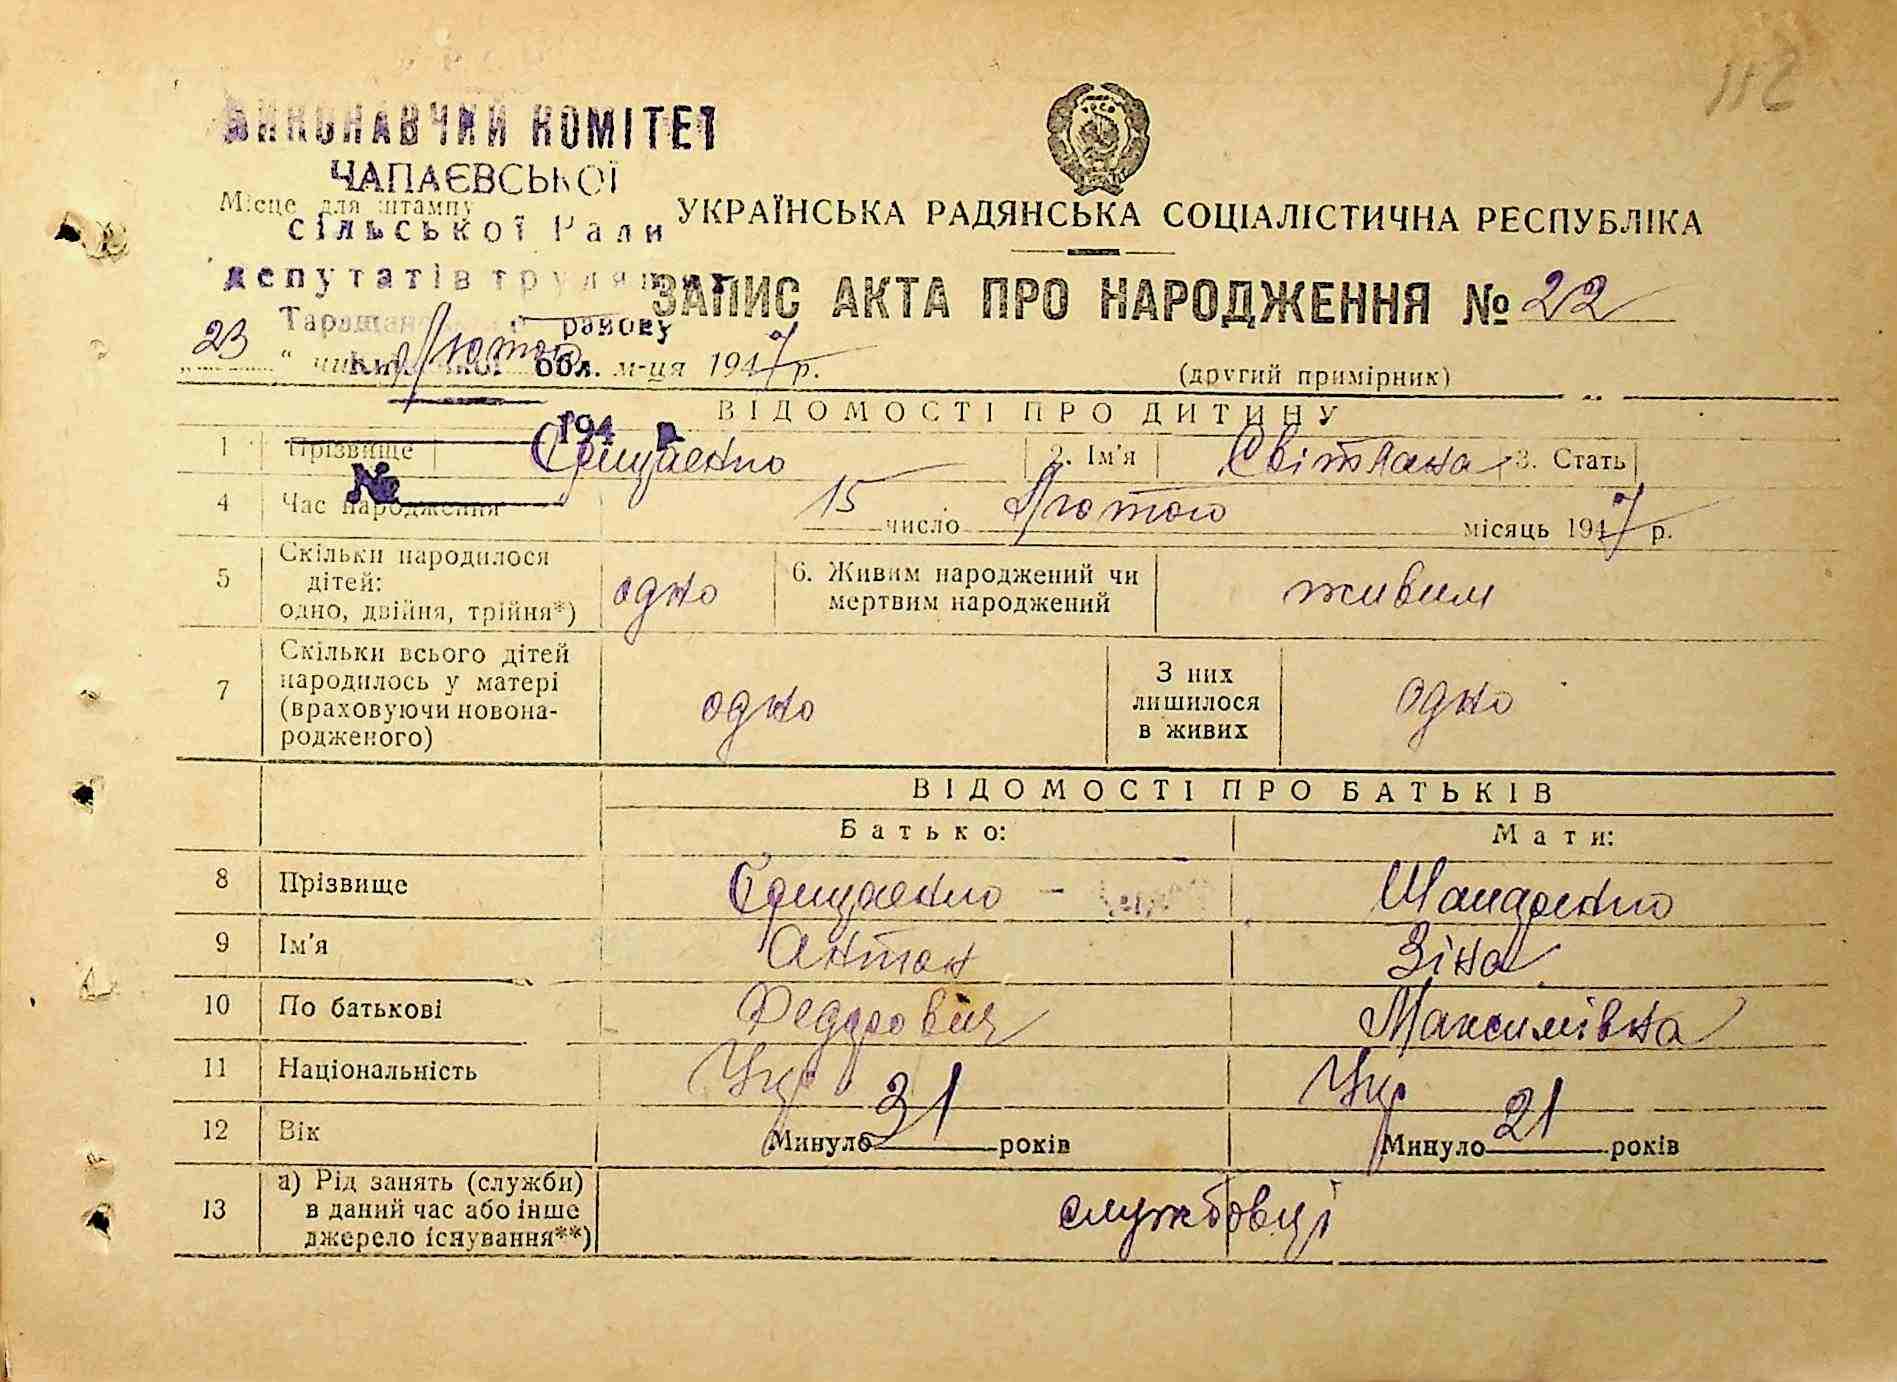 112
ВИКОНАВЧИЙ КОМІТЕТ
ЧАПАЄВСЬКОЇ
Місце для штампу
сільської Ради
УКРАЇНСЬКА РАДЯНСЬКА СОЦІАЛІСТИЧНА РЕСПУБЛІКА
депутатів трудящих
ЗАПИС АКТА ПРО НАРОДЖЕННЯ № 22
Таращанського району
23 " числа Лютого м-ця 1947 р.
Київської обл.
(другий примірник)
194 р.
№
ВІДОМОСТІ ПРО ДИТИНУ
1 Прізвище Грищенко 2. Ім'я Світлана 3. Стать
4 Час народження 15 число Лютого місяць 1947 р.
5 Скільки народилося дітей: одно, двійня, трійня*) одно 6. Живим народжений чи мертвим народжений живим
7 Скільки всього дітей народилось у матері (враховуючи новона-родженого) одно З них лишилося в живих одно
ВІДОМОСТІ ПРО БАТЬКІВ
Батько: Мати:
8 Прізвище Грищенко – Шандренко
9 Ім'я Антон Зіна
10 По батькові Федорович Максимівна
11 Національність Укр Укр
12 Вік Минуло 31 років Минуло 21 років
13 а) Рід занять (служби) в даний час або інше джерело існування**) службовці